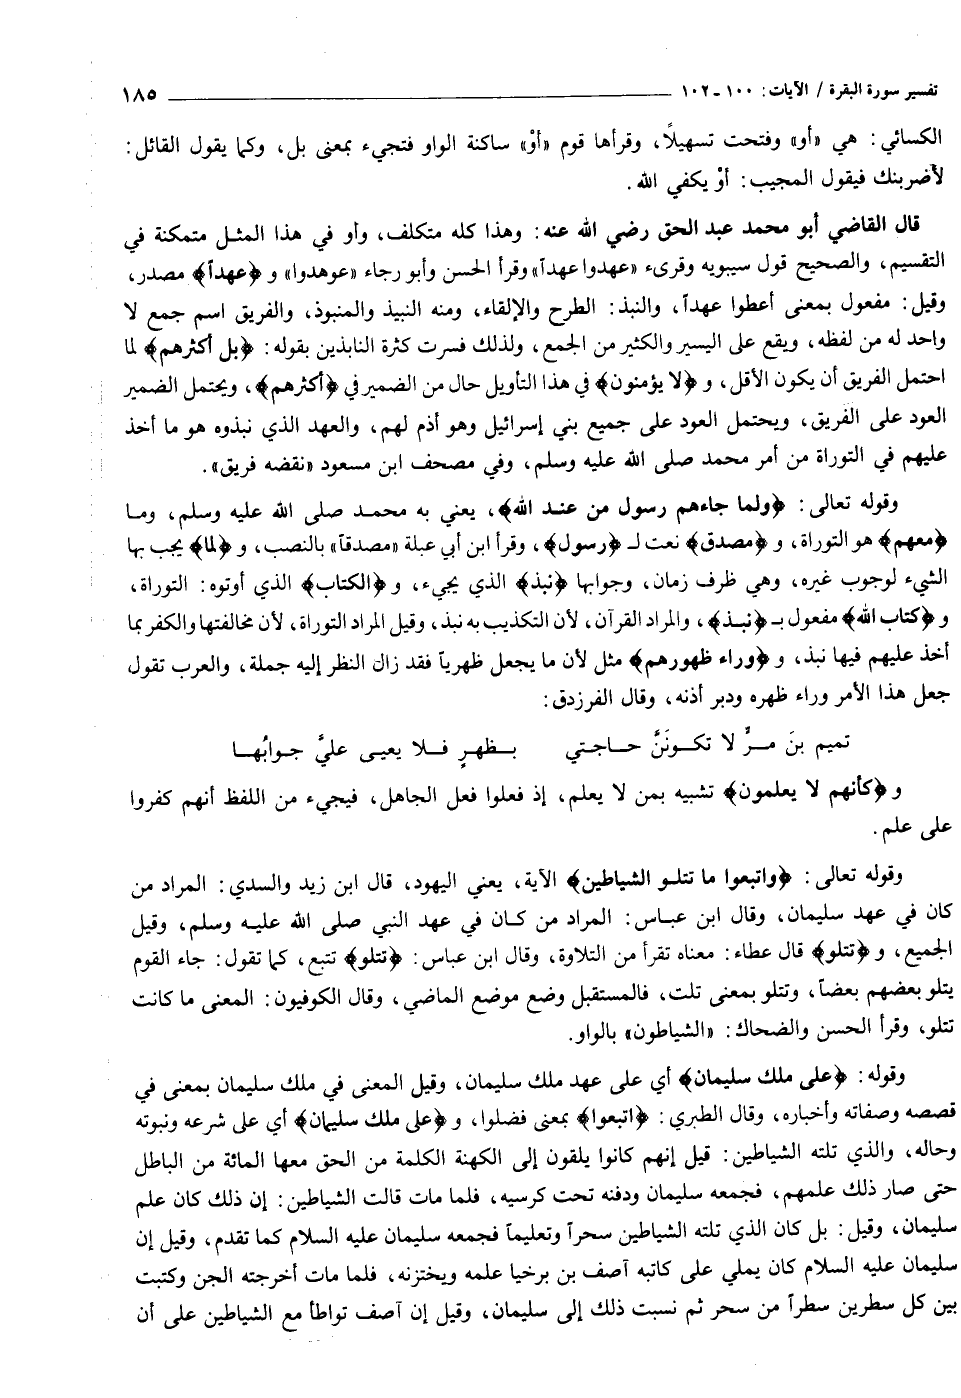 تفسير سورة البقرة / الآيات: ١٠٠ـ١٠٢ ١٨٥
الكسائي: هي «أو» وفتحت تسهيلاً، وقرأها قوم «أوْ» ساكنة الواو فتجيء بمعنى بل، وكما يقول القائل:
لأضربنك فيقول المجيب: أوْ يكفي الله.
قال القاضي أبو محمد عبد الحق رضي الله عنه: وهذا كله متكلف، وأو في هذا المثل متمكنة في
التقسيم، والصحيح قول سيبويه وقرىء «عهدوا عهداً» وقرأ الحسن وأبو رجاء «عوهدوا» و ﴿عهداً﴾ مصدر،
وقيل: مفعول بمعنى أعطوا عهداً، والنبذ: الطرح والإلقاء، ومنه النبيذ والمنبوذ، والفريق اسم جمع لا
واحد له من لفظه، ويقع على اليسير والكثير من الجمع، ولذلك فسرت كثرة النابذين بقوله: ﴿بل أكثرهم﴾ لما
احتمل الفريق أن يكون الأقل، و ﴿لا يؤمنون﴾ في هذا التأويل حال من الضمير في ﴿أكثرهم﴾، ويحتمل الضمير
العود على الفريق، ويحتمل العود على جميع بني إسرائيل وهو أذم لهم، والعهد الذي نبذوه هو ما أخذ
عليهم في التوراة من أمر محمد صلى الله عليه وسلم، وفي مصحف ابن مسعود «نقضه فريق».
وقوله تعالى: ﴿ولما جاءهم رسول من عند الله﴾، يعني به محمد صلى الله عليه وسلم، وما
﴿معهم﴾ هو التوراة، و ﴿مصدق﴾ نعت لـ ﴿رسول﴾، وقرأ ابن أبي عبلة «مصدقاً» بالنصب، و ﴿لما﴾ يجب بها
الشيء لوجوب غيره، وهي ظرف زمان، وجوابها ﴿نبذ﴾ الذي يجيء، و ﴿الكتاب﴾ الذي أوتوه: التوراة،
و ﴿كتاب الله﴾ مفعول بـ ﴿نبذ﴾، والمراد القرآن، لأن التكذيب به نبذ، وقيل المراد التوراة، لأن مخالفتها والكفر بما
أخذ عليهم فيها نبذ، و ﴿وراء ظهورهم﴾ مثل لأن ما يجعل ظهرياً فقد زال النظر إليه جملة، والعرب تقول
جعل هذا الأمر وراء ظهره ودبر أذنه، وقال الفرزدق:
تميم بنَ مرٍّ لا تكونَنَّ حاجتي بظهرٍ فلا يعيى عليَّ جوابُها
و ﴿كأنهم لا يعلمون﴾ تشبيه بمن لا يعلم، إذ فعلوا فعل الجاهل، فيجيء من اللفظ أنهم كفروا
على علم.
وقوله تعالى: ﴿واتبعوا ما تتلو الشياطين﴾ الآية، يعني اليهود، قال ابن زيد والسدي: المراد من
كان في عهد سليمان، وقال ابن عباس: المراد من كان في عهد النبي صلى الله عليه وسلم، وقيل
الجميع، و ﴿تتلو﴾ قال عطاء: معناه تقرأ من التلاوة، وقال ابن عباس: ﴿تتلو﴾ تتبع، كما تقول: جاء القوم
يتلو بعضهم بعضاً، وتتلو بمعنى تلت، فالمستقبل وضع موضع الماضي، وقال الكوفيون: المعنى ما كانت
تتلو، وقرأ الحسن والضحاك: «الشياطون» بالواو.
وقوله: ﴿على ملك سليمان﴾ أي على عهد ملك سليمان، وقيل المعنى في ملك سليمان بمعنى في
قصصه وصفاته وأخباره، وقال الطبري: ﴿اتبعوا﴾ بمعنى فضلوا، و ﴿على ملك سليمان﴾ أي على شرعه ونبوته
وحاله، والذي تلته الشياطين: قيل إنهم كانوا يلقون إلى الكهنة الكلمة من الحق معها المائة من الباطل
حتى صار ذلك علمهم، فجمعه سليمان ودفنه تحت كرسيه، فلما مات قالت الشياطين: إن ذلك كان علم
سليمان، وقيل: بل كان الذي تلته الشياطين سحراً وتعليماً فجمعه سليمان عليه السلام كما تقدم، وقيل إن
سليمان عليه السلام كان يملي على كاتبه آصف بن برخيا علمه ويختزنه، فلما مات أخرجته الجن وكتبت
بين كل سطرين سطراً من سحر ثم نسبت ذلك إلى سليمان، وقيل إن آصف تواطأ مع الشياطين على أن